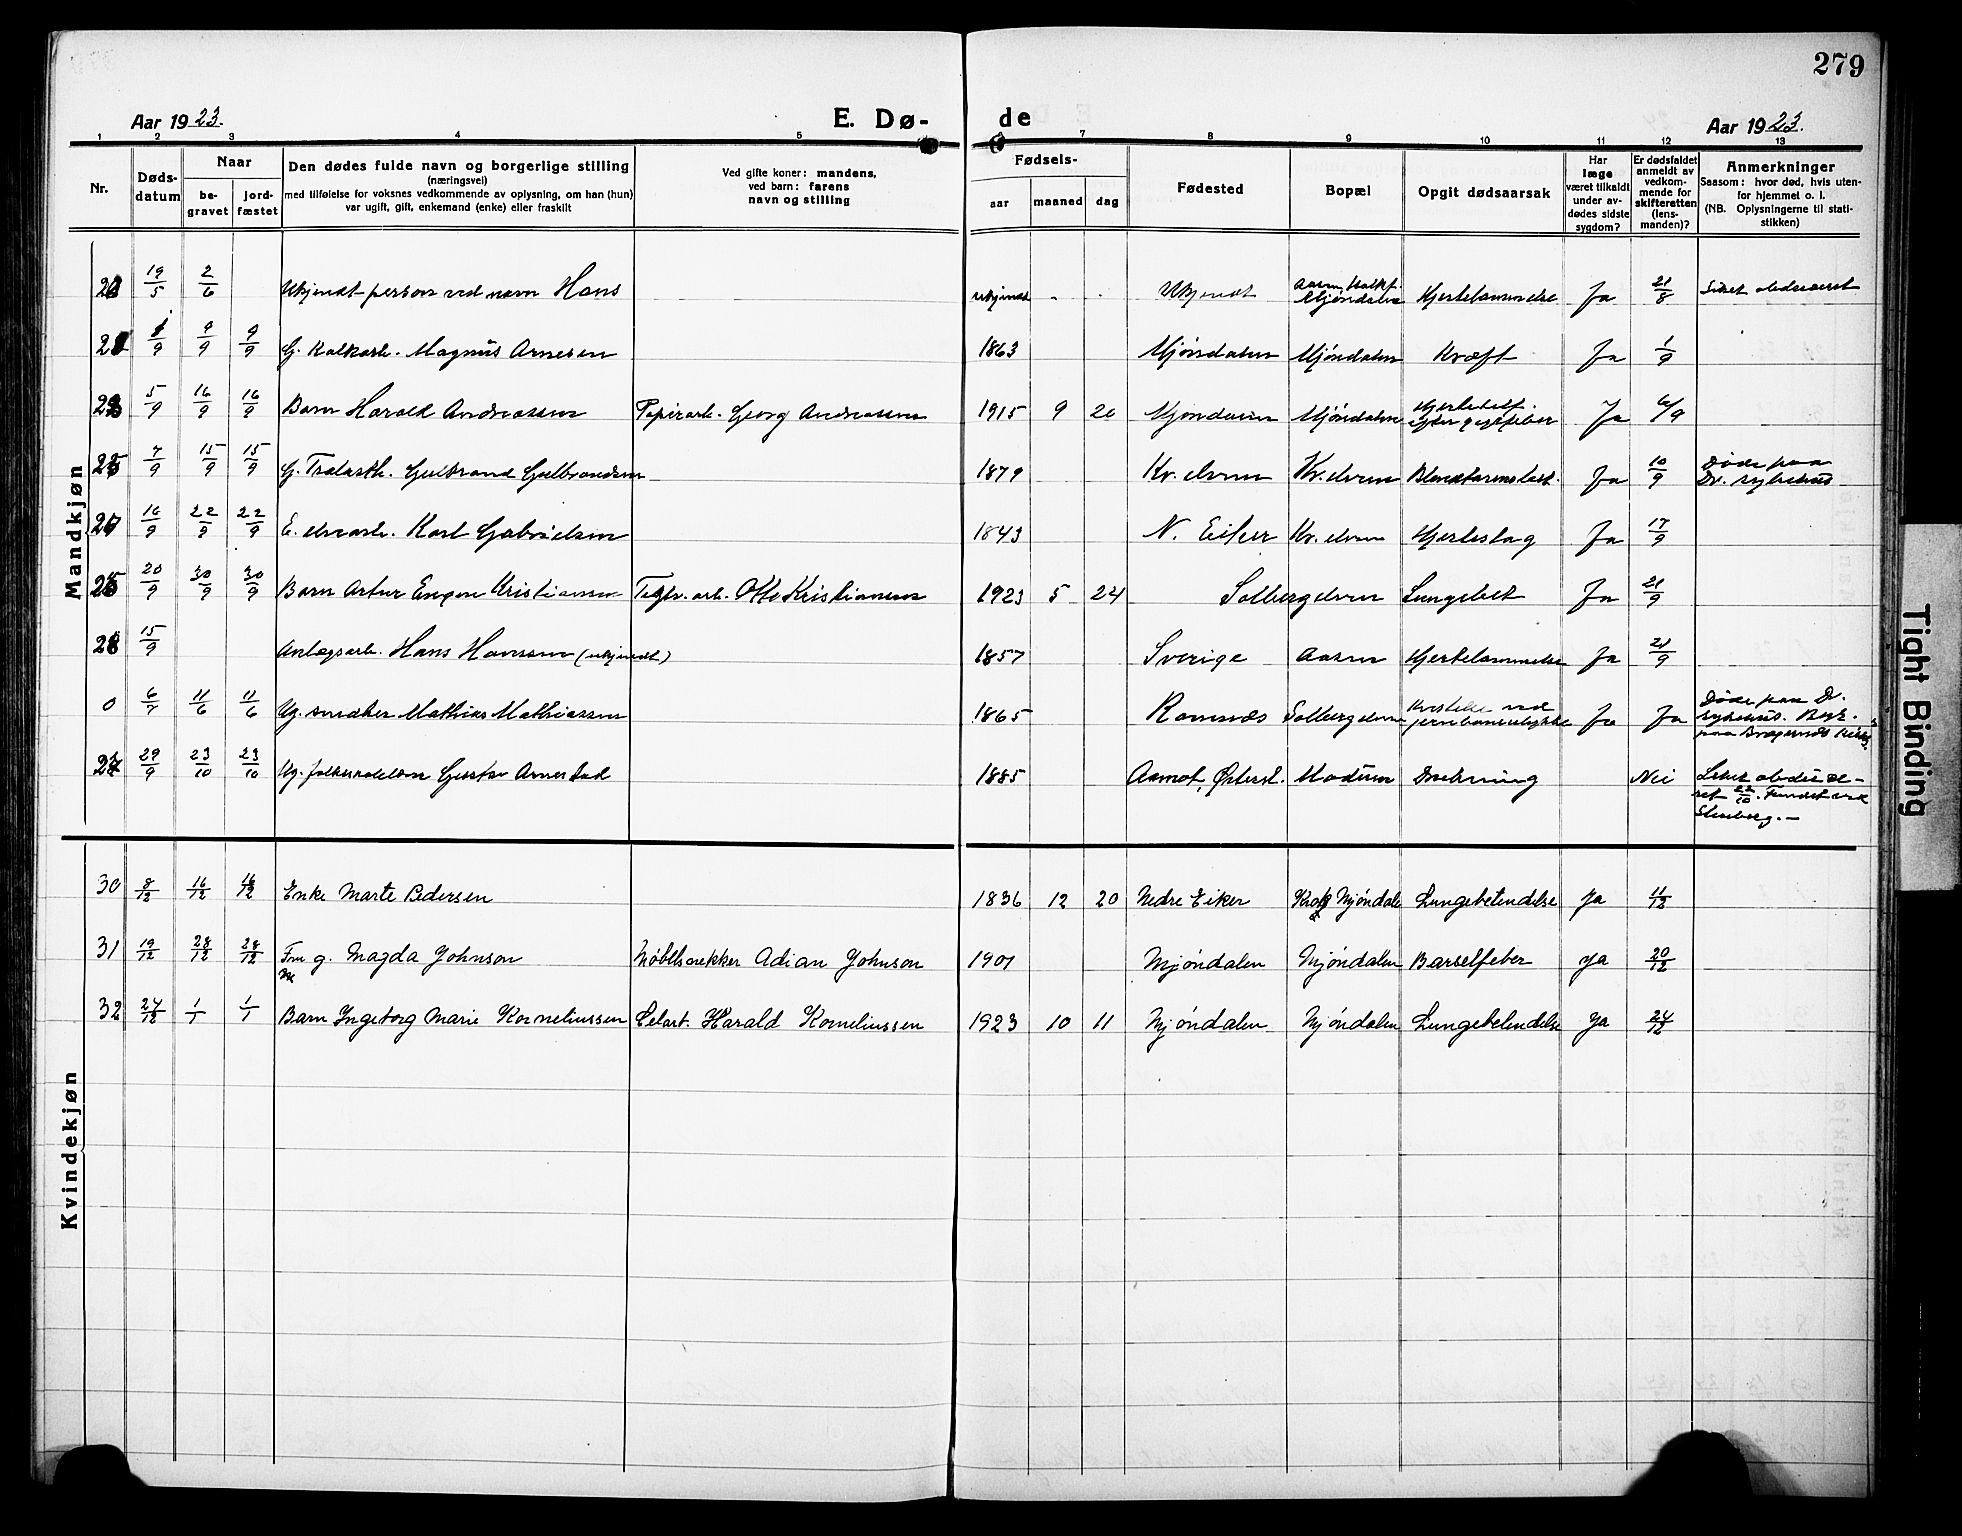 279
Aar 1923.
E. Dø-
de
Aar 1923.
1 2 3 4 5 6 7 8 9 10 11 12 13
Nr.
Døds-
datum
Naar
be-
gravet
jord-
fæstet
Den dødes fulde navn og borgerlige stilling
(næringsvei)
med tilføielse for voksnes vedkommende av oplysning, om han (hun)
var ugift, gift, enkemand (enke) eller fraskilt
Ved gifte koner: mandens,
ved barn: farens
navn og stilling
Fødsels-
aar maaned dag
Fødested
Bopæl
Opgit dødsaarsak
Har
læge
været tilkaldt
under av-
dødes sidste
sygdom?
Er dødsfaldet
anmeldt av
vedkom-
mende for
skifteretten
(lens-
manden)?
Anmerkninger
Saasom: hvor død, hvis uten-
for hjemmet o. l.
(NB. Oplysningerne til stati-
stikken)
Mandkjøn
19/5 2/6 Ukjendt person ved navn Hans ukjendt - - Ukjendt Mjøndalen Hjertelammelse Ja 21/8
9/9 9/9 G. Kalkarb. Magnus Arnesen 1863 Mjøndalen Mjøndalen Kræft Ja 1/9
5/9 16/9 16/9 Barn Harald Andreassen Papirarb. Georg Andreassen 1915 9 20 Mjøndalen Mjøndalen Ja 6/9
7/9 15/9 15/9 G. Gulbrand Gulbrandsen 1879 Kr. elven Kr. elven Ja 10/9 Døde paa
Dr. sykehus
16/9 22/9 22/9 E. Karl Gabrielsen 1843 N. Eiker Kr. elven Hjerteslag Ja 17/9
20/9 30/9 30/9 Barn Artur Engen Kristiansen Teglv. arb. Otto Kristiansen 1923 5 24 Solbergelven Lungebet Ja 21/9
15/9 Anlægsarb. Hans Hanssen (ukjendt) 1857 Sverige Aasen Hjertelammelse Ja 21/9
0 6/7 11/6 11/6 Ug. Mathias Mathiassen 1865 Ramnæs Solbergelven jernbaneulykke Ja Ja Døde paa Dr.
sykehus. Begr.
paa Bragernæs
29/9 23/10 23/10 Ug. Gustav Arnestad 1885 Aamot, Modum Drukning Nei
22/10. Fundet ved
Steinberg. -
Kvindekjøn
30 8/12 16/12 16/12 Enke Marte Pedersen 1836 12 20 Nedre Eiker Mjøndalen Lungebetendelse Ja 11/12
31 19/12 28/12 28/12 Fru g. Magda Johnson Møbelsnekker Adian Johnson 1901 Mjøndalen Mjøndalen Barselfeber Ja 20/12
32 24/12 1/1 1/1 Barn Ingeborg Marie Korneliussen Celarb. Harald Korneliussen 1923 10 11 Mjøndalen Mjøndalen Lungebetendelse Ja 24/12
Tight Binding